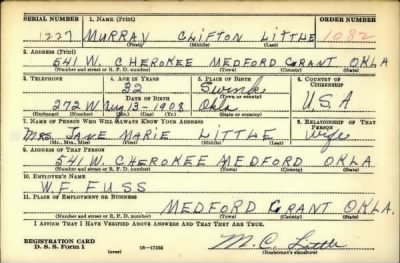 SERIAL NUMBER 1. NAME (Print) ORDER NUMBER
1227 MURRAY CLIFTON LITTLE 1082
(First) (Middle) (Last)
2. ADDRESS (Print)
541 W. CHEROKEE MEDFORD GRANT OKLA
(Number and street or R. F. D. number) (Town) (County) (State)
3. TELEPHONE 4. AGE IN YEARS 5. PLACE OF BIRTH 6. COUNTRY OF CITIZENSHIP
32
DATE OF BIRTH (Town or county)
272 W Aug 13-1908 Okla USA
(Exchange) (No.) (Mo.) (Day) (Yr.) (State or country)
7. NAME OF PERSON WHO WILL ALWAYS KNOW YOUR ADDRESS 8. RELATIONSHIP OF THAT PERSON
MRS. JANE MARIE LITTLE wife
(Mr., Mrs., Miss) (First) (Middle) (Last)
9. ADDRESS OF THAT PERSON
541 W. CHEROKEE MEDFORD OKLA.
(Number and street or R. F. D. number) (Town) (County) (State)
10. EMPLOYER'S NAME
W. F. FUSS
11. PLACE OF EMPLOYMENT OR BUSINESS
MEDFORD GRANT OKLA.
(Number and street or R. F. D. number) (Town) (County) (State)
I AFFIRM THAT I HAVE VERIFIED ABOVE ANSWERS AND THAT THEY ARE TRUE.
REGISTRATION CARD
D. S. S. Form 1 (over) 16-17105 M. C. Little
(Registrant's signature)